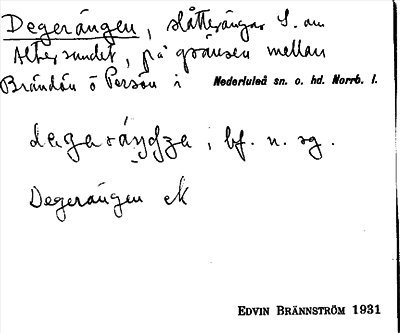 Degerängen, slåtterängar S. om
Altersundet, på gränsen mellan
Brändön o Persön i Nederluleå sn. o. hd. Norrb. l.
; bf. n. sg.
Degerängen ek
EDVIN BRÄNNSTRÖM 1931